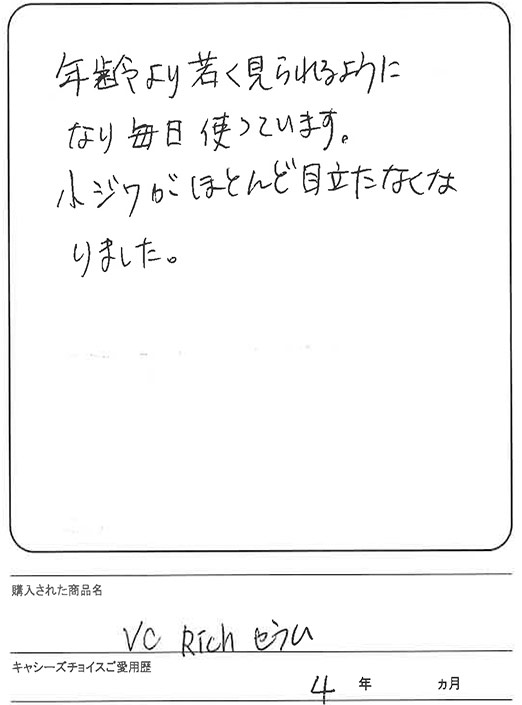 年齢より若く見られるように
なり毎日使っています。
小ジワがほとんど目立たなくな
りました。
購入された商品名
VC Rich セラム
キャシーズチョイスご愛用歴
4 年 ヵ月